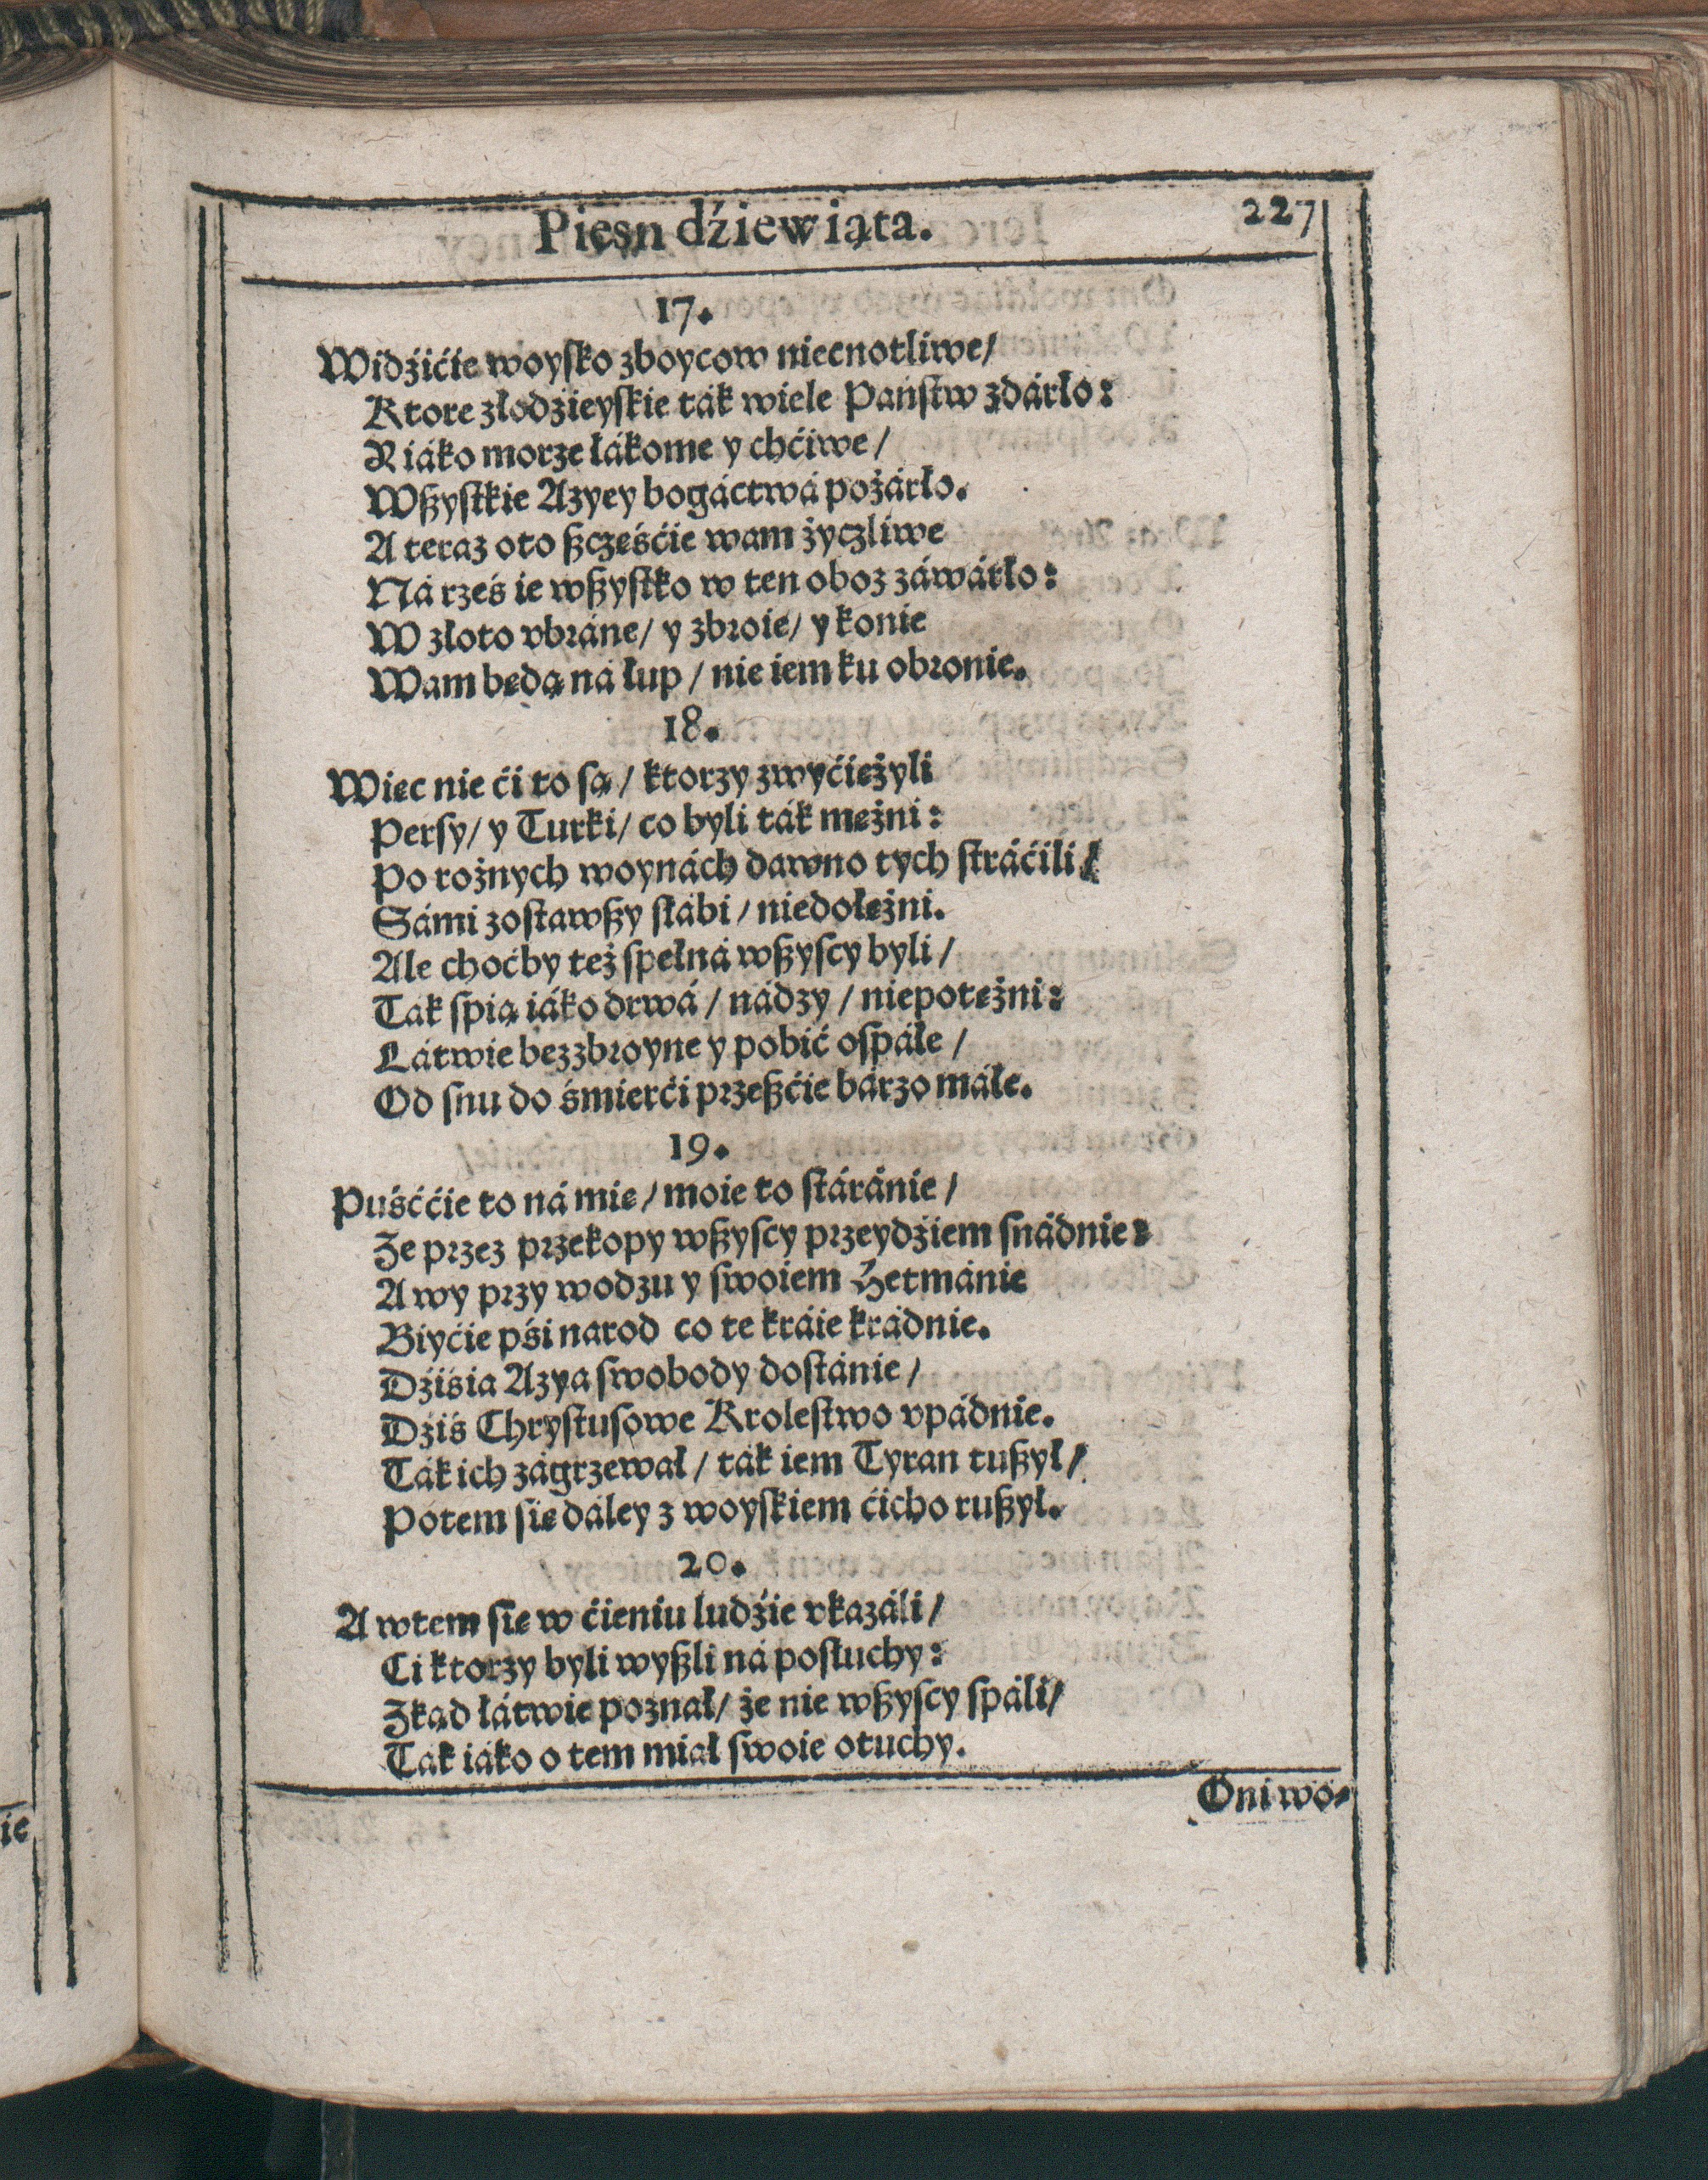 Pięsn dźiewiąta.
227
17.
Widźićie woysko zboycow niecnotliwe/
Ktore złodźieyskie ták wiele Państw zdárło:
R iáko morze łákome y chćiwe/
Wszystkie Azyey bogáctwá pożárło.
A teraz oto szczęśćie wam życzliwe
Ná rześ ie wszystko w ten oboz záwárło:
W złoto vbráne/ y zbroie/ y konie
Wam będą ná łup/ nie iem ku obronie.
18.
Więc nie ći to są/ ktorzy zwyćiężyli
Persy/ y Turki/ co byli ták mężni:
Po rożnych woynách dawno tych stráćili/
Sámi zostawszy słábi/ niedołężni.
Ale choćby też spełná wszyscy byli/
Tak spią iáko drwá/ nádzy/ niepotężni:
Łátwie bezzbroyne y pobić ospáłe/
Od snu do śmierći przeszćie bárzo máłe.
19.
Puśććie to ná mię/ moie to stáránie/
Że przez przekopy wszyscy przeydźiem snádnie:
A wy przy wodzu y swoiem Hetmánie
Biyćie pśi narod co te kráie kradnie.
Dźiśia Azya swobody dostánie/
Dźiś Chrystusowe Krolestwo vpádnie.
Ták ich zágrzewał/ ták iem Tyran tuszył/
Potem się dáley z woyskiem ćicho ruszył.
20.
A wtem się w ćieniu ludźie vkazáli/
Ci ktorzy byli wyszli ná posłuchy:
Zkąd łátwie poznał/ że nie wszyscy spáli/
Tak iáko o tem miał swoie otuchy.
Oni wo-
ie